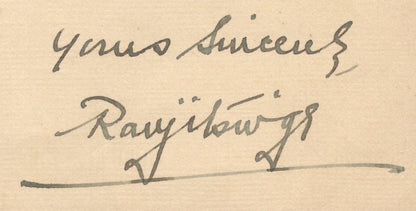 Yours Sincerely
Ranjitsinhji